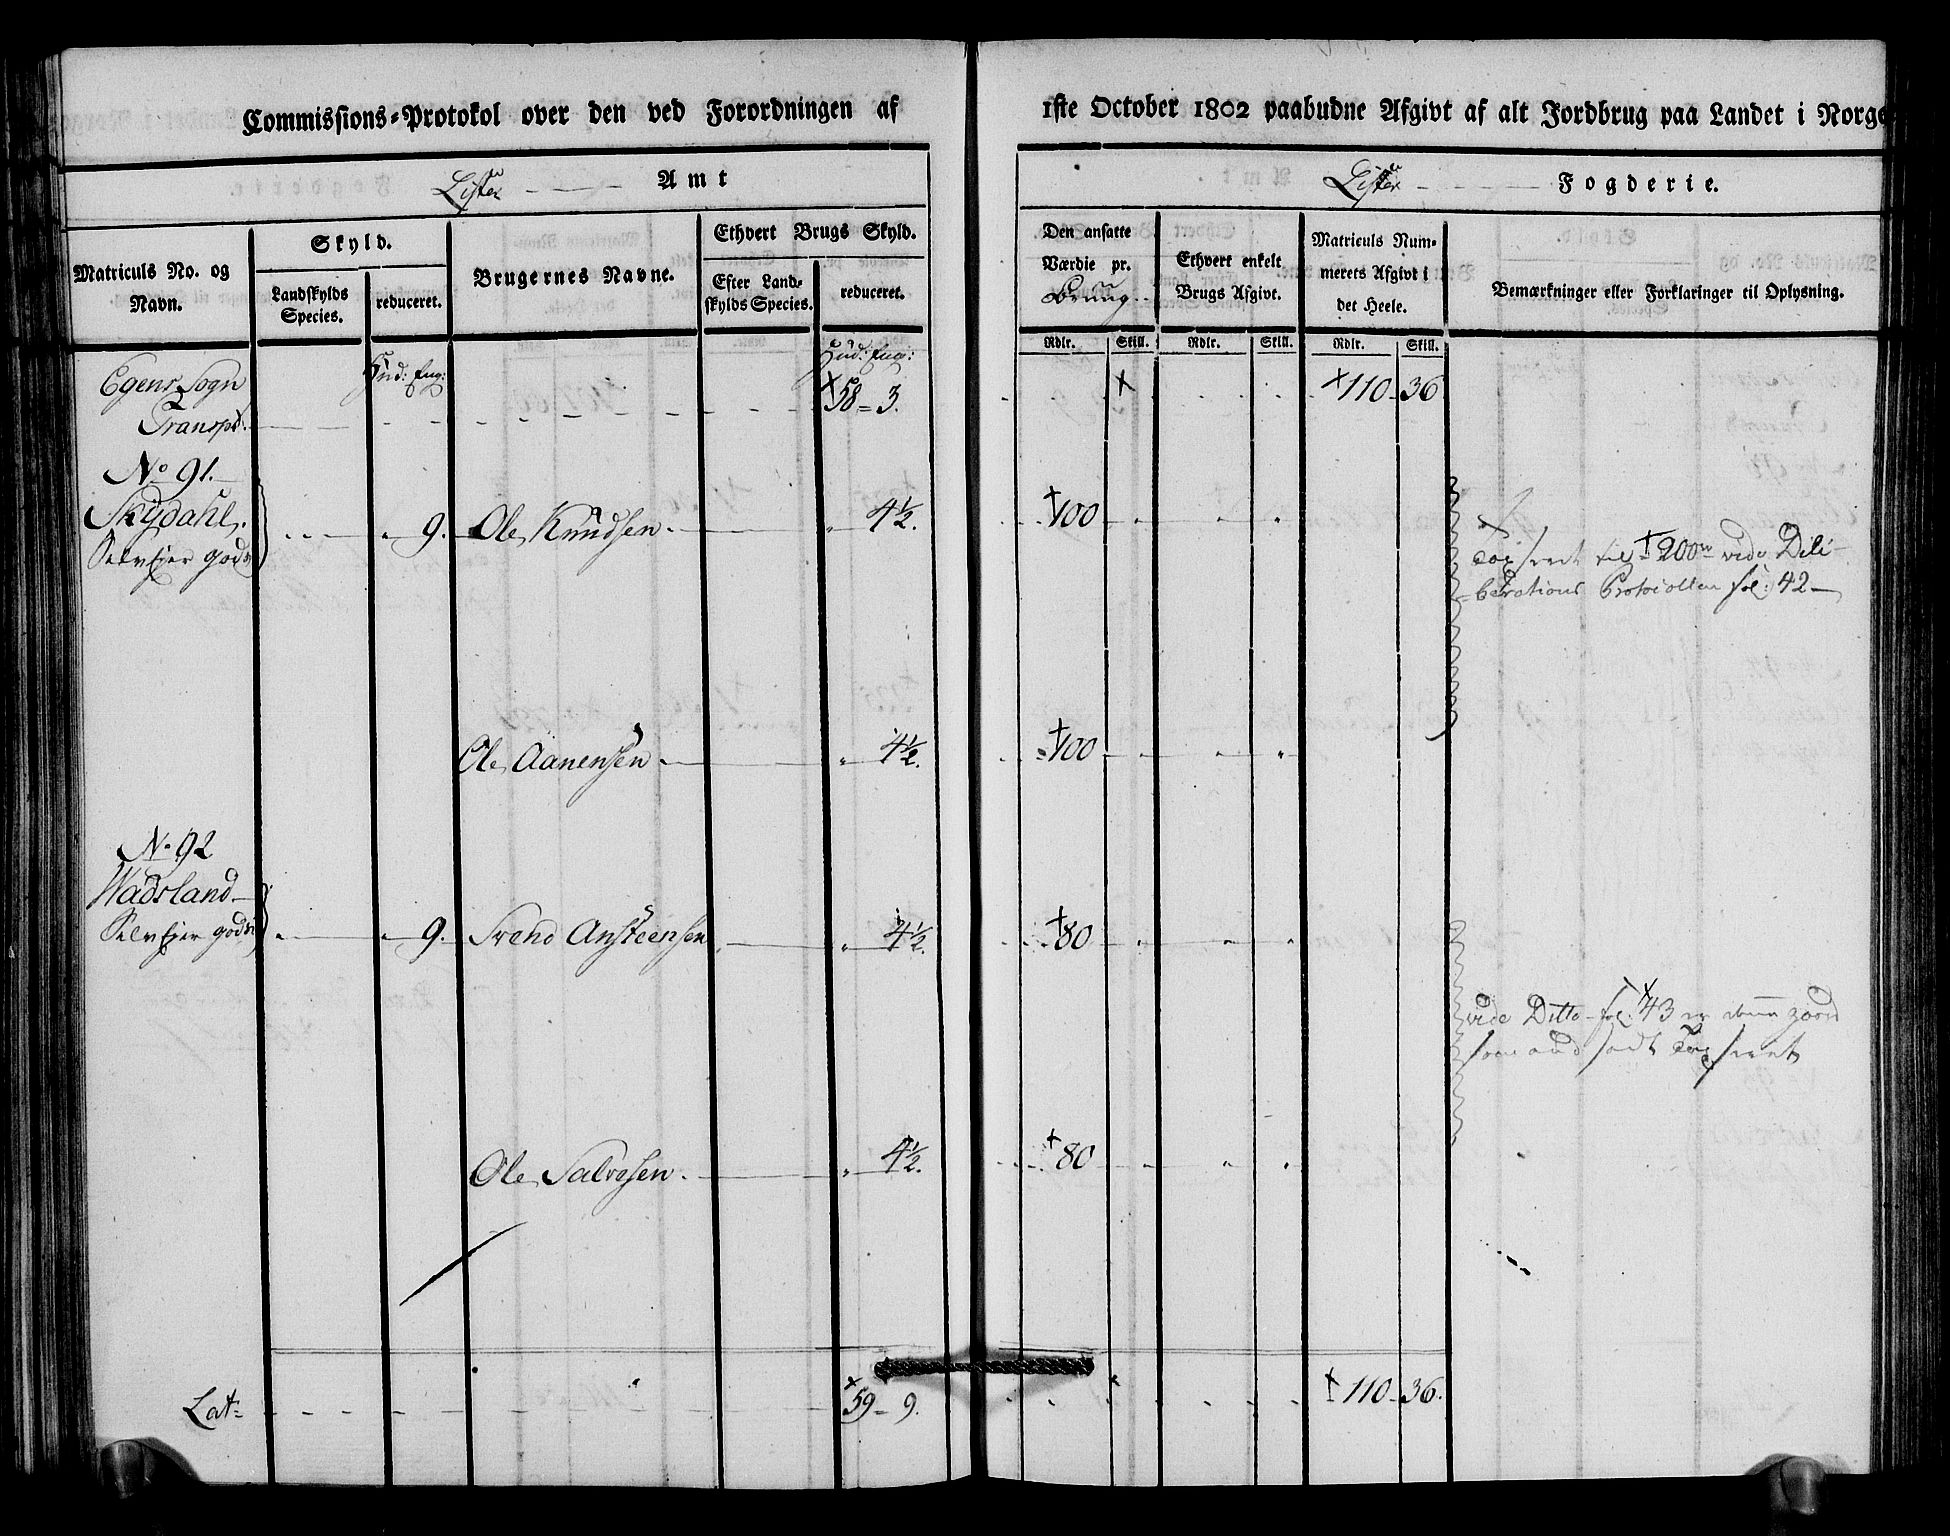 Commissions-Protokol over den ved Forordningen af 1ste October 1802 paabudne Afgivt af alt Jordbrug paa Landet i Norge
Lister Amt
Lister Fogderie.
Matriculs No. og Navn.
Skyld.
Landskylds Species.
reduceret.
Brugernes Navne.
Ethvert Brugs Skyld.
Efter Landskylds Species.
reduceret.
Den ansatte Værdie pr. Bruug
Ethvert enkelt Brugs Afgivt.
Matriculs Nummerets Afgivt i det Heele.
Bemærkninger eller Forklaringer til Oplysning.
Rdlr. Skill. Rdlr. Skill. Rdlr. Skill.
Hud: Eng: Hud: Eng:
Egens Sogn
Transpt. 58 = 3. 110 - 36
No 91.
Skijdahl. 9. Ole Knudsen 4½. 100
SelvEjer gods
Taxseret til 200 rd vide Deli-
berations Protocollen fol: 42
Ole Aanensen 4½. 100
No 92
Wadsland
SelvEjer gods 9. Svend Ansteensen 4½. 80
vide Ditto fol: 43 er denne gaard
Taxseret
Ole Salvesen 4½. 80
Lat= 59 = 9. 110 - 36.